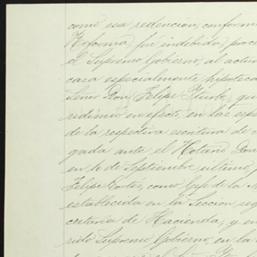 como esa redencion, conforme
Reforma, fué indebida, proce
el Supremo Gobierno, al actua
casa especialmente hipoteca
Señor Don Felipe Iturbe, que
redimió en efecto, en los esp
de la respectiva escritura de
gada ante el Notario Don
en 10 de Septiembre último,
Felipe Cortes, como Gefe de la
establecida en la Seccion seg
cretaria de Hacienda, y en
rido Supremo Gobierno, en la